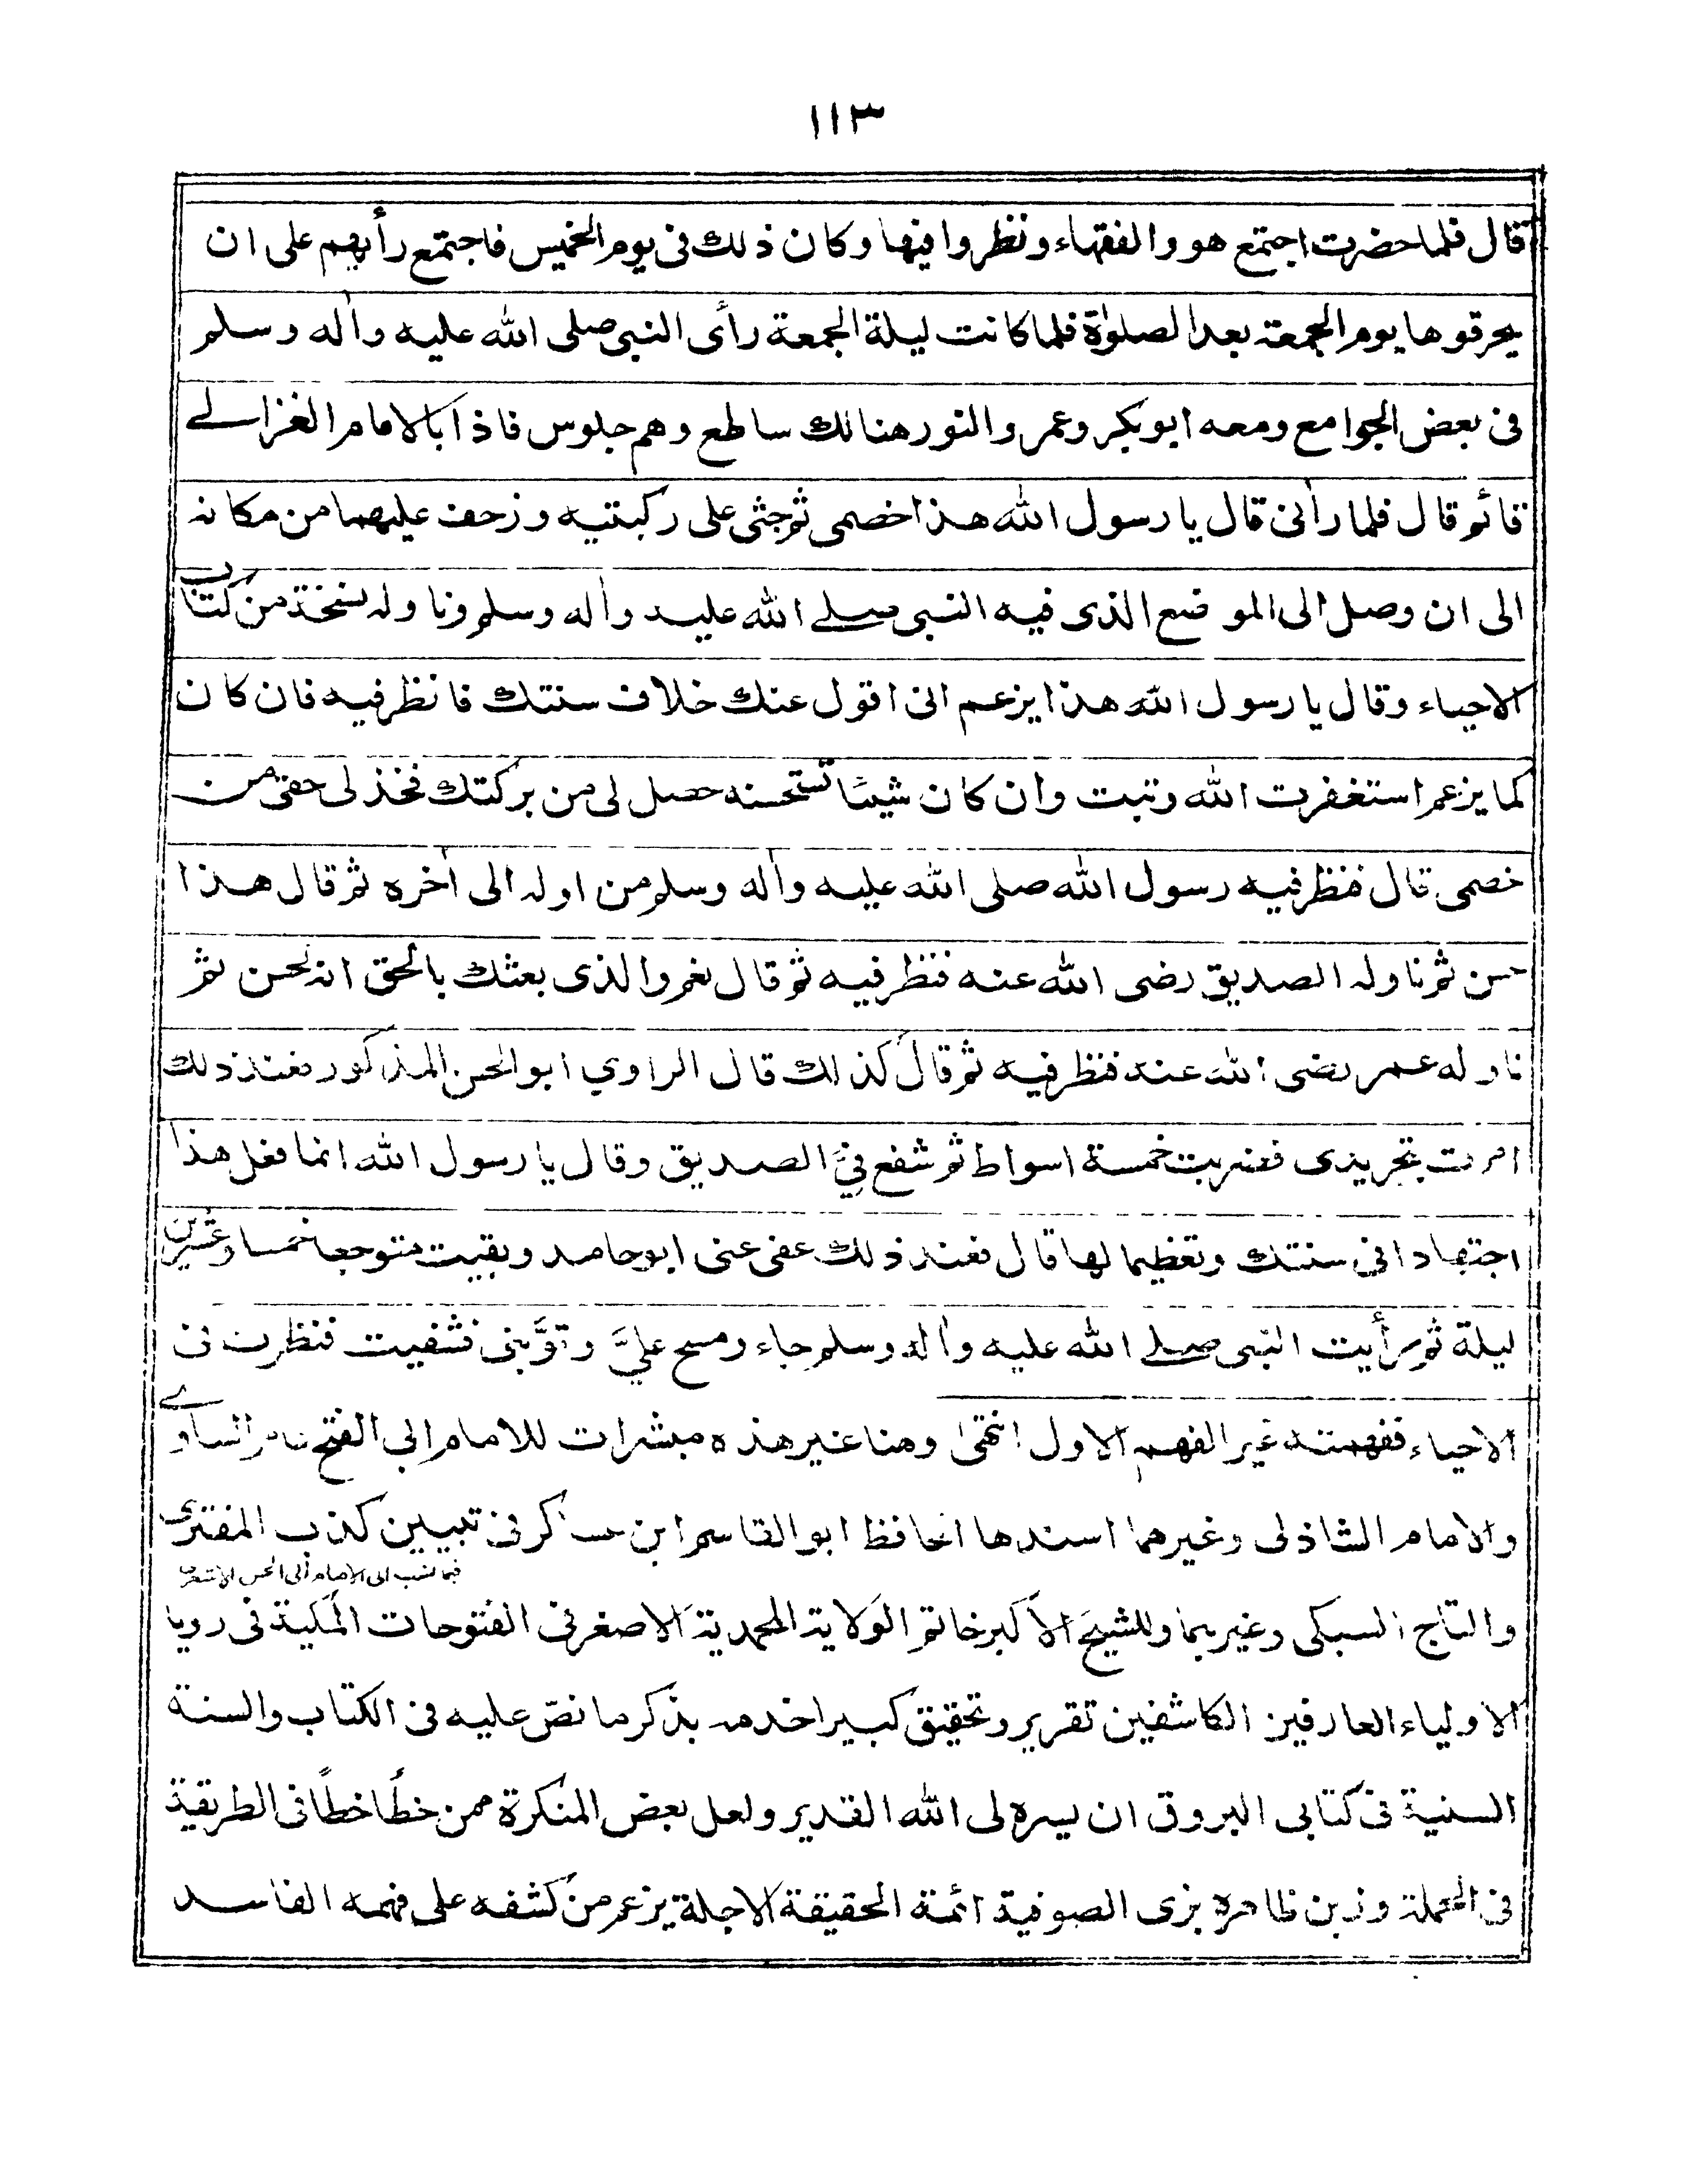 ١١٣
قال فلما حضرت اجتمع هو والفقهاء ونظروا فيها وكان ذلك فى يوم الخميس فاجتمع رأيهم على ان
يحرقوها يوم الجمعة بعد الصلوٰة فلما كانت ليلة الجمعة رأى النبى صلى الله عليه واٰله وسلم
فى بعض الجوامع ومعه ابوبكر وعمر والنور هنالك ساطع وهم جلوس فاذا بالامام الغزالے
قائم قال فلما رأنى قال يا رسول الله هذا خصمى ثم جثى على ركبتيه وزحف عليهما من مكانه
الى ان وصل الى الموضع الذى فيه النبى صلے الله عليه واٰله وسلم وناوله نسخة من كتاب
الاحياء وقال يا رسول الله هذا يزعم انى اقول عنك خلاف سنتك فانظر فيه فان كان
كما يزعم استغفرت الله وتبت وان كان شيئا تستحسنه حصل لى من بركتك فخذ لى حقى من
خصمى قال فنظر فيه رسول الله صلى الله عليه واٰله وسلم من اوله الى اٰخره ثم قال هذا
حسن ثم ناوله الصديق رضى الله عنه فنظر فيه ثم قال نعم والذى بعثك بالحق انه لحسن ثم
ناوله عمر رضى الله عنه فنظر فيه ثم قال كذلك قال الراوي ابو الحسن المذكور فعند ذلك
امرت بتجريدى فضربت خمسة اسواط ثم شفع فيَّ الصديق وقال يا رسول الله انما فعل هذا
اجتهادا فى سنتك وتعظيما لها قال فعند ذلك عفى عنى ابو حامد وبقيت متوجعا خمسا وعشرين
ليلة ثم رأيت النبى صلے الله عليه واٰله وسلم جاء ومسح عليَّ وتوَّبنى فشفيت فنظرت فى
الاحياء ففهمته غير الفهم الاول انتهىٰ وهنا غير هذه مبشرات للامام ابى الفتح عامر الساوے
والامام الشاذلى وغيرهما اسندها الحافظ ابو القاسم ابن عساكر فى تبيين كذب المفترى
فيما نسب الى الامام ابى الحسن الاشعرى
والتاج السبكى وغيرهما وللشيخ الاكبر خاتم الولاية المحمدية الاصغر فى الفتوحات المكية فى رويا
الاولياء العارفين الكاشفين تقرير وتحقيق كبير اخدمه بذكر ما نصّ عليه فى الكتاب والسنة
السنية فى كتابى البروق ان يسره لى الله القدير ولعل بعض المنكرة ممن خطأ خطاً فى الطريقة
فى الجملة وزين ظاهره بزى الصوفية ائمة الحقيقة الاجلة يزعم من كشفه على فهمه الفاسد